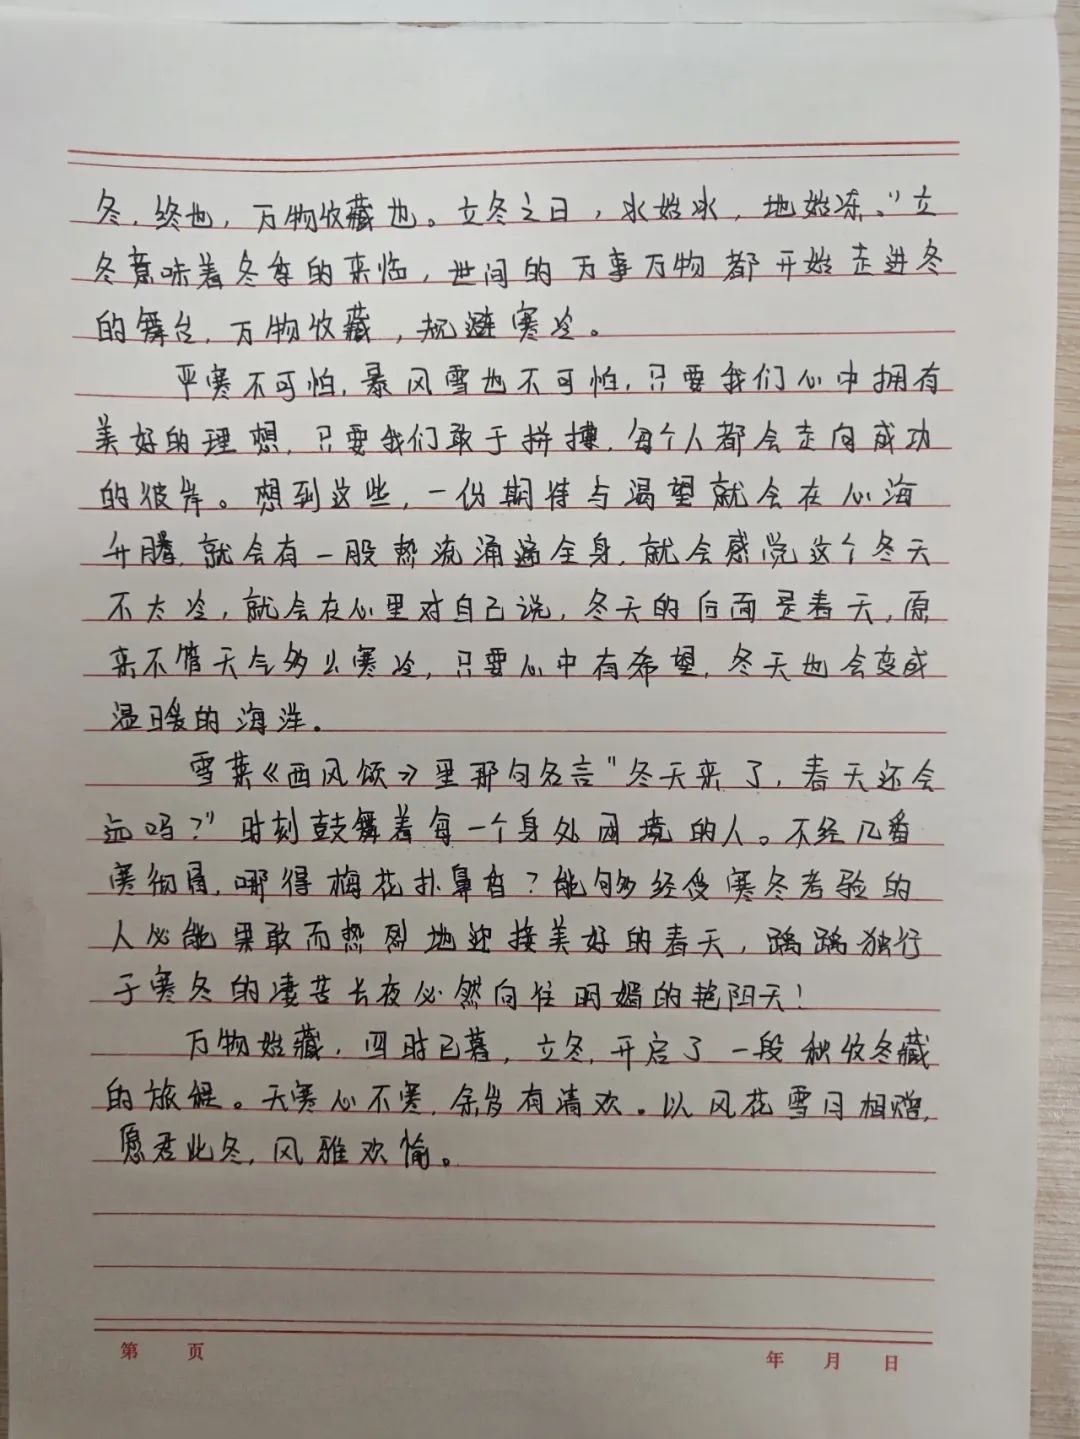 冬，终也，万物收藏也。立冬之日，水始冰，地始冻。”立
冬意味着冬季的来临，世间的万事万物都开始走进冬
的舞台，万物收藏，规避寒冷。
严寒不可怕，暴风雪也不可怕，只要我们心中拥有
美好的理想，只要我们敢于拼搏，每个人都会走向成功
的彼岸。想到这些，一份期待与渴望就会在心海
升腾，就会有一股热流涌遍全身，就会感觉这个冬天
不太冷，就会在心里对自己说，冬天的后面是春天，原
来不管天气多么寒冷，只要心中有希望，冬天也会变成
温暖的海洋。
雪莱《西风颂》里那句名言“冬天来了，春天还会
远吗？”时刻鼓舞着每一个身处困境的人。不经几番
寒彻骨，哪得梅花扑鼻香？能够经受寒冬考验的
人必能果敢而热烈地迎接美好的春天，踽踽独行
于寒冬的凄苦长夜必然向往明媚的艳阳天！
万物始藏，四时已暮，立冬，开启了一段秋收冬藏
的旅程。天寒心不寒，余岁有清欢。以风花雪月相赠，
愿君此冬，风雅欢愉。
第 页
年 月 日